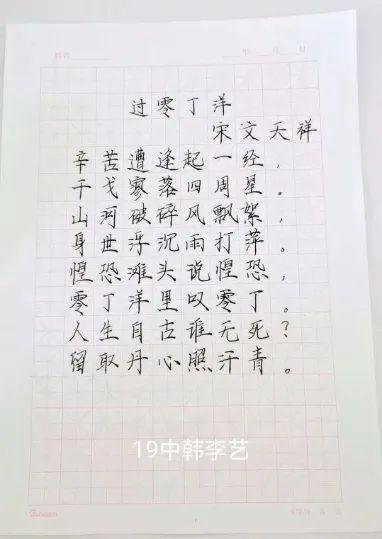 过零丁洋
宋 文天祥
辛苦遭逢起一经，
干戈寥落四周星。
山河破碎风飘絮，
身世浮沉雨打萍。
惶恐滩头说惶恐，
零丁洋里叹零丁。
人生自古谁无死？
留取丹心照汗青。
19中韩李艺